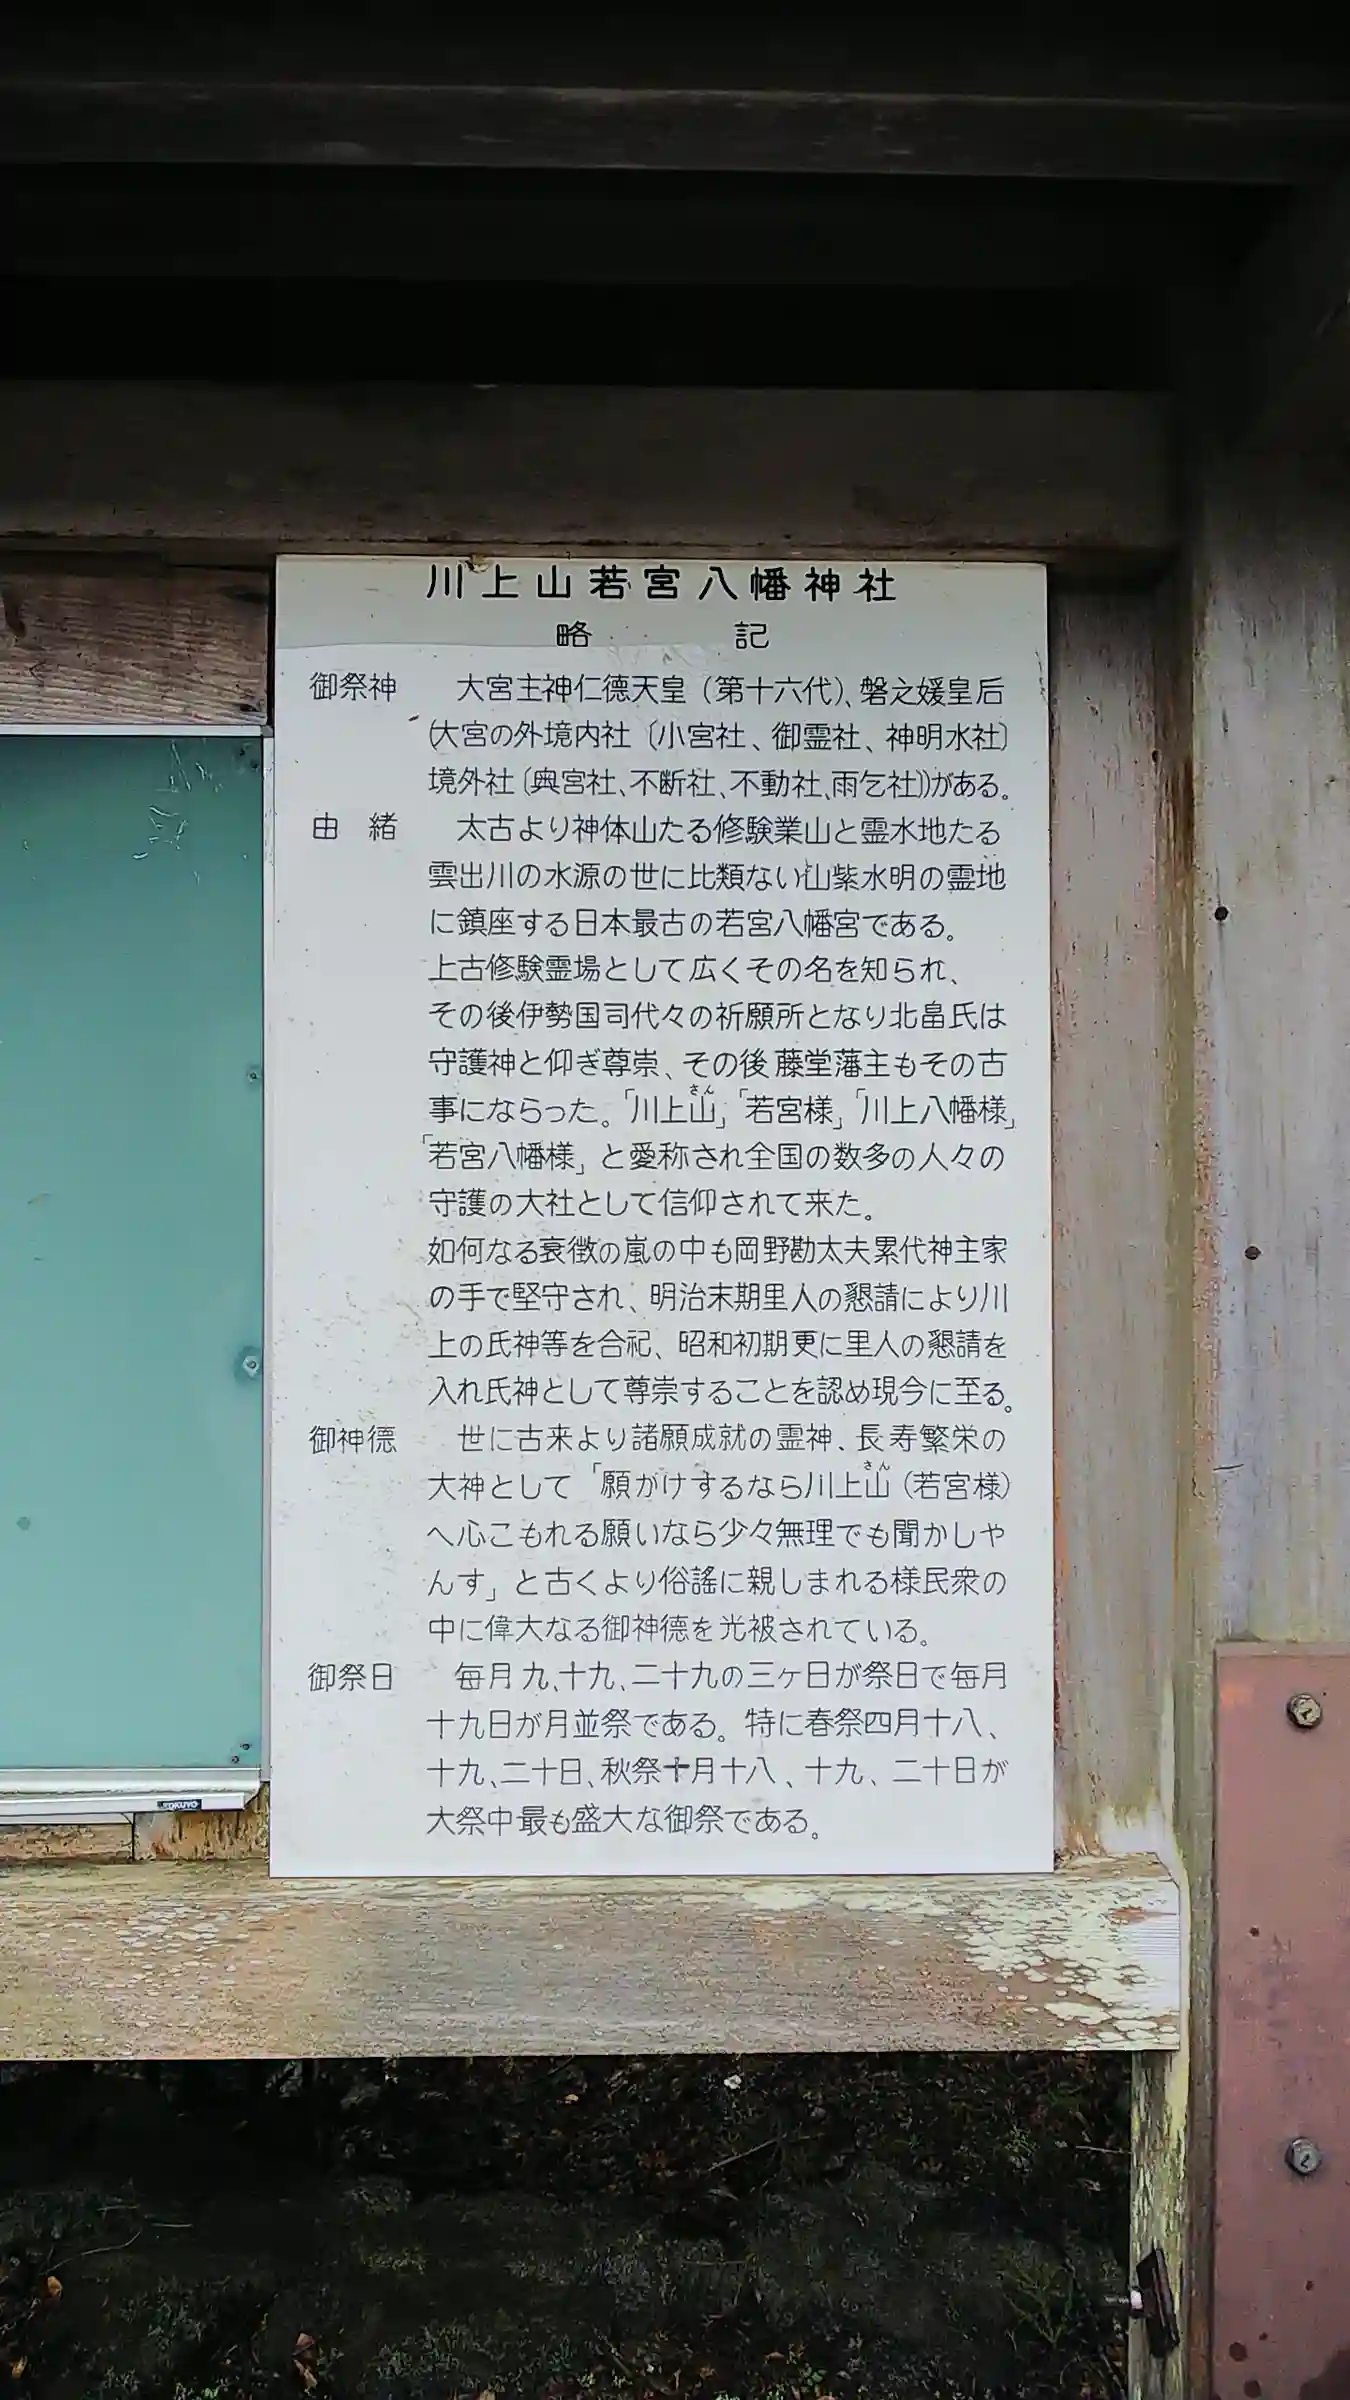 川上山若宮八幡神社
略 記
御祭神 大宮主神仁徳天皇(第十六代)、磐之媛皇后
(大宮の外境内社〔小宮社、御霊社、神明水社〕
境外社〔興宮社、不断社、不動社、雨乞社〕)がある。
由 緒 太古より神体山たる修験業山と霊水地たる
雲出川の水源の世に比類ない山紫水明の霊地
に鎮座する日本最古の若宮八幡宮である。
上古修験霊場として広くその名を知られ、
その後伊勢国司代々の祈願所となり北畠氏は
守護神と仰ぎ尊崇、その後藤堂藩主もその古
事にならった。「川上山さん」「若宮様」「川上八幡様」
「若宮八幡様」と愛称され全国の数多の人々の
守護の大社として信仰されて来た。
如何なる衰徴の嵐の中も岡野勘太夫累代神主家
の手で堅守され、明治末期里人の懇請により川
上の氏神等を合祀、昭和初期更に里人の懇請を
入れ氏神として尊崇することを認め現今に至る。
御神徳 世に古来より諸願成就の霊神、長寿繁栄の
大神として「願がけするなら川上山さん(若宮様)
へ心こもれる願いなら少々無理でも聞かしゃ
んす」と古くより俗謠に親しまれる様民衆の
中に偉大なる御神徳を光被されている。
御祭日 毎月九、十九、二十九の三ヶ日が祭日で毎月
十九日が月並祭である。特に春祭四月十八、
十九、二十日、秋祭十月十八、十九、二十日が
大祭中最も盛大な御祭である。
KOKUYO